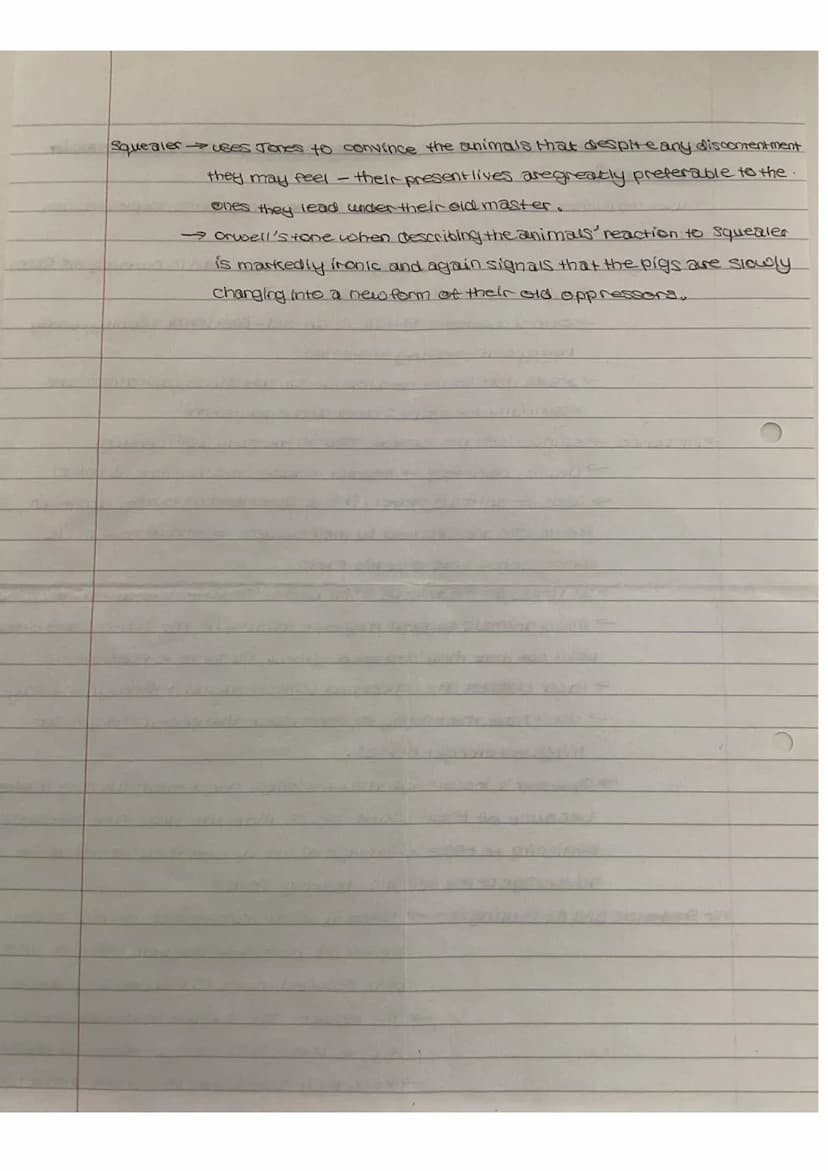 Squealer → uses Jones to convince the animals that despite any discontentment
they may feel – their present lives are greatly preferable to the
ones they lead under their old master.
→ Orwell's tone when describing the animals' reaction to squealer
is markedly ironic and again signals that the pigs are slowly
changing into a new form of their old oppressors.